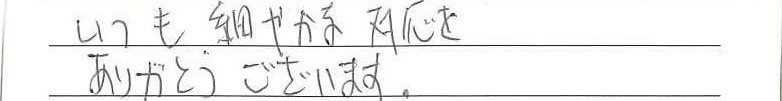 いつも細やかな対応を
ありがとうございます。